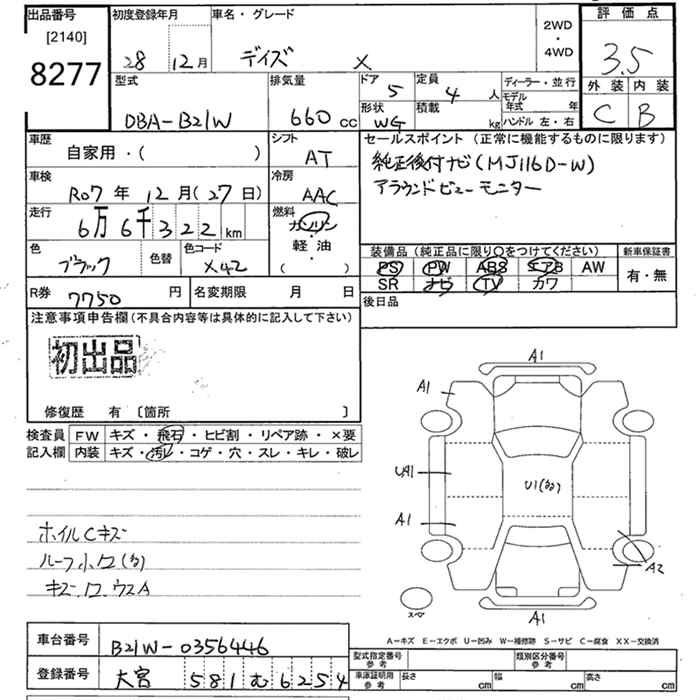 出品番号
[2140]
8277
初度登録年月
28 12月
車名・グレード
デイズ X
2WD
・
4WD
評価点
3.5
外装 内装
C B
型式
DBA-B21W
排気量
660 cc
ドア
5
定員
4 人
形状
WG
積載
kg
ディーラー・並行
モデル年式 年
ハンドル 左・右
車歴
自家用・( )
シフト
AT
車検
R07年 12月(27日)
冷房
AAC
走行
6万6千322km
燃料
ガソリン
・
軽油
( )
色
ブラック
色替
色コード
X42
セールスポイント (正常に機能するものに限ります)
純正後付ナビ(MJ116D-W)
アラウンドビューモニター
装備品 (純正品に限り〇をつけてください)
PS PW ABS エアB AW
SR ナビ TV カワ
新車保証書
有・無
後日品
R券 7750 円
名変期限 月 日
注意事項申告欄(不具合内容等は具体的に記入して下さい)
初出品
修復歴 有 〔箇所 〕
検査員
記入欄
FW キズ・飛石・ヒビ割・リペア跡・×要
内装 キズ・汚レ・コゲ・穴・スレ・キレ・破レ
ホイルCキズ
ルーフ小
キズ
A1
A1
UA1
U1
A1
A2
A1
A-キズ E-エクボ U-凹み W-補修跡 S-サビ C-腐食 XX-交換済
車台番号
B21W-0356446
登録番号
大宮 581 む 6254
型式指定番号
参考
類別区分番号
参考
車庫証明用
参考
長さ cm
幅 cm
高さ cm